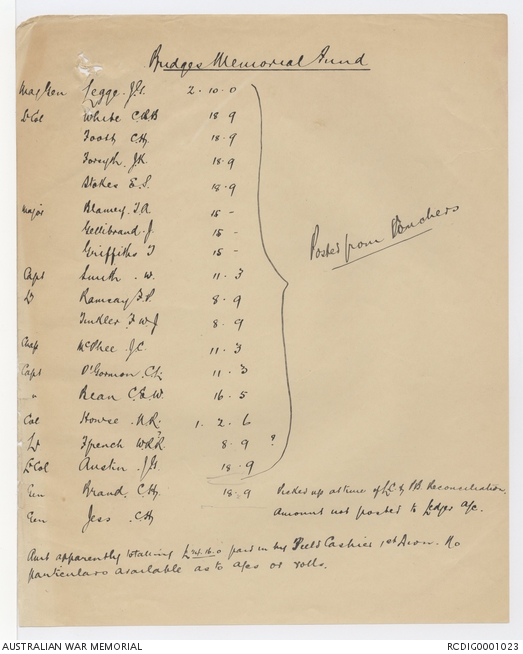 Bridges Memorial Fund
Maj Gen Legge. J.G. 2. 10. 0
Lt Col White C.B.B 18. 9
Foott C.H. 18. 9
Forsyth J.K. 18. 9
Stokes E.S. 18. 9
Major Blamey T.A. 15 -
Gellibrand J. 15 -
Griffiths T 15 -
Capt Smith . W. 11. 3
Lt Ramsay 8. 9
Tinkler F W J 8. 9
Chap McPhee J.C. 11. 3
Capt O'Gorman C.L. 11. 3
" Bean C.E.W. 16. 5
Col Howse N.R. 1. 2. 6
Lt Ffrench W.R.R. 8. 9 ?
Lt Col Austin J.G. 18. 9
Posted from Vouchers
Gen Brand. C.H. 18. 9 Picked up at time of P.B. Reconciliation.
Gen Jess C.H. Amount not posted to Ldgs a/c.
Amt apparently totalling paid in by Field Cashier 1st Divn. No
particulars available as to a/cs or rolls.
AUSTRALIAN WAR MEMORIAL RCDIG0001023